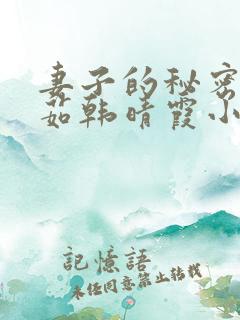 妻子的秘密
茹韩晴霞小
記憶語
未任同意禁止转载